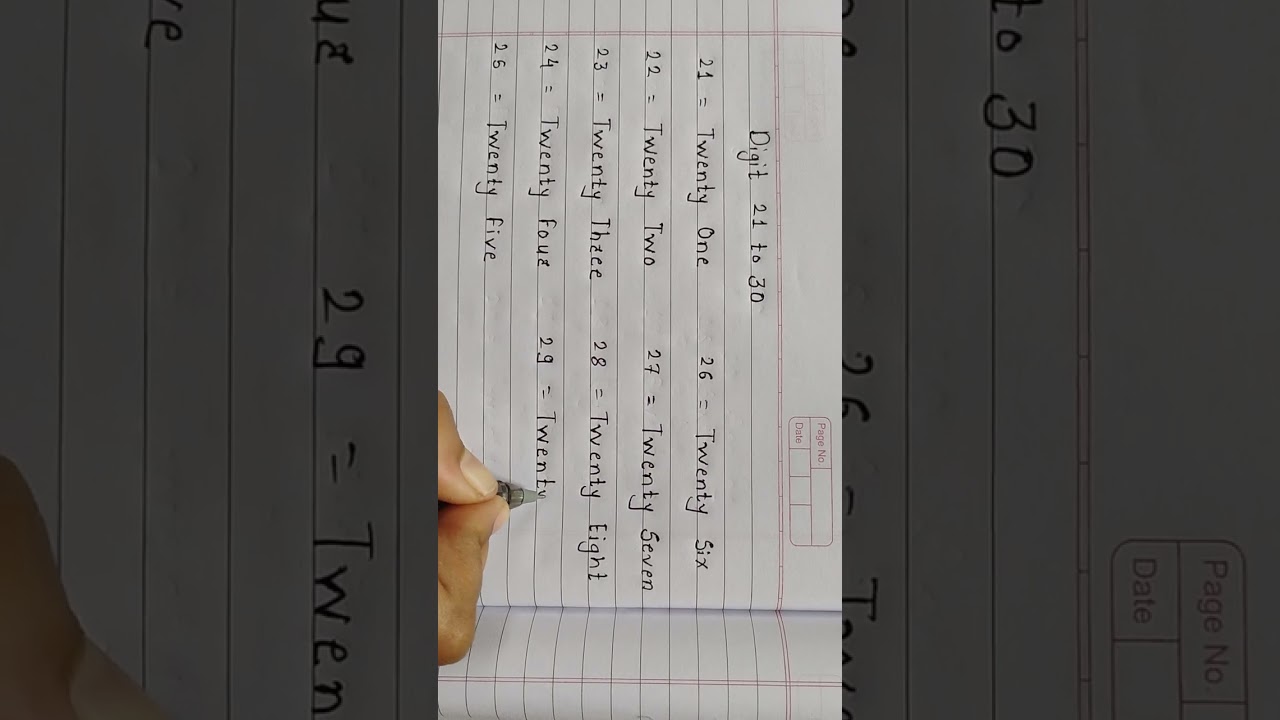 Page No.
Date
Digit 21 to 30
21 = Twenty One
22 = Twenty Two
23 = Twenty Three
24 = Twenty Four
25 = Twenty five
26 = Twenty Six
27 = Twenty Seven
28 = Twenty Eight
29 = Twenty